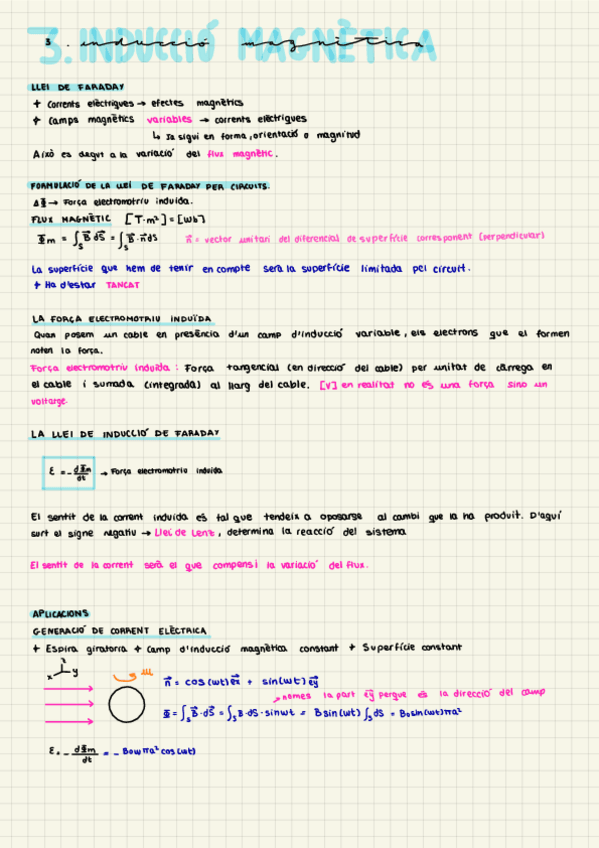 3. inducció magnètica
3. INDUCCIÓ MAGNÈTICA
LLEI DE FARADAY
+ Corrents elèctriques → efectes magnètics
+ Camps magnètics variables → corrents elèctriques
↳ Ja sigui en forma, orientació o magnitud
Això es degut a la variació del flux magnètic.
FORMULACIÓ DE LA LLEI DE FARADAY PER CIRCUITS.
ΔΦ → Força electromotriu induida.
FLUX MAGNÈTIC [T·m²] = [Wb]
Φm = ∫s B⃗ dS⃗ = ∫s B⃗ · n⃗ dS n⃗ = vector unitari del diferencial de superfície corresponent (perpendicular)
La superfície que hem de tenir en compte serà la superfície limitada pel circuit.
+ Ha d'estar TANCAT
LA FORÇA ELECTROMOTRIU INDUÏDA
Quan posem un cable en presència d'un camp d'inducció variable, els electrons que el formen
noten la força.
Força electromotriu induïda : Força tangencial (en direcció del cable) per unitat de càrrega en
el cable i sumada (integrada) al llarg del cable. [V] en realitat no és una força sino un
voltarge.
LA LLEI DE INDUCCIÓ DE FARADAY
ε = - dΦm/dt → Força electromotriu induida
El sentit de la corrent induida és tal que tendeix a oposarse al cambi que la ha produit. D'aquí
surt el signe negatiu → Llei de Lenz, determina la reacció del sistema
El sentit de la corrent serà el que compensi la variació del flux.
APLICACIONS
GENERACIÓ DE CORRENT ELÈCTRICA
+ Espira giratoria + Camp d'inducció magnètica constant + Superfície constant
x y n⃗ = cos(wt) e⃗x + sin(wt) e⃗y
→ nomes la part e⃗y perque és la direcció del camp
Φ = ∫s B⃗ · dS⃗ = ∫s B · dS · sinwt = B sin(wt) ∫s dS = B₀ sin(wt) πa²
ε = - dΦm/dt = - B₀wπa² cos(wt)